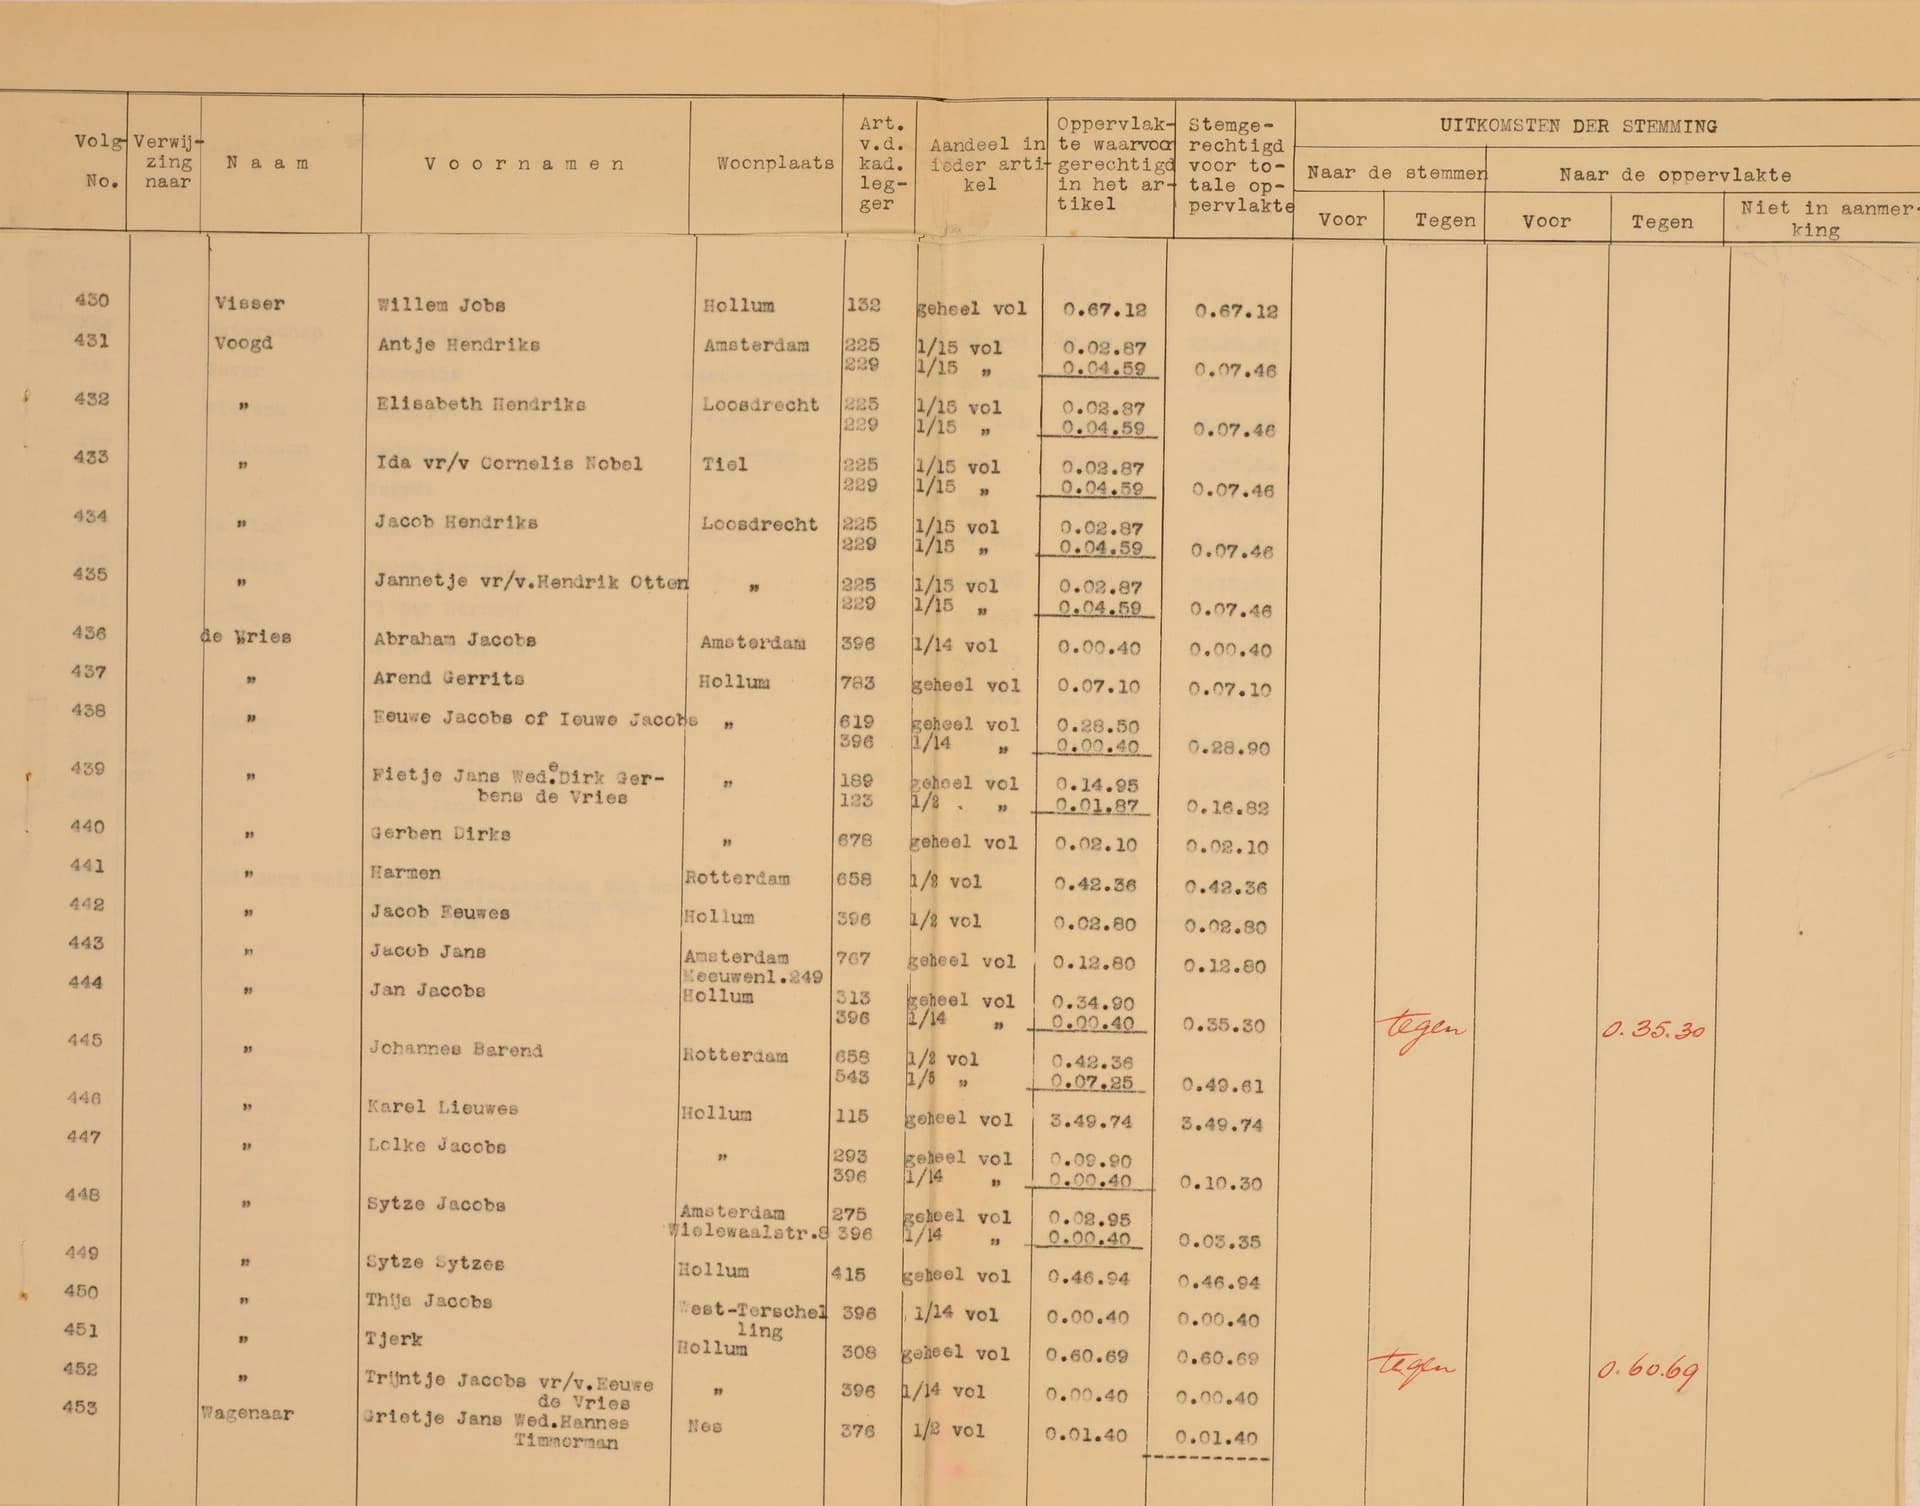 Volg- No. Verwij- zing naar Naam Voornamen Woonplaats Art. v.d. kad. leg- ger Aandeel in ieder arti- kel Oppervlak- te waarvoor gerechtigd in het ar- tikel Stemge- rechtigd voor to- tale op- pervlakte UITKOMSTEN DER STEMMING
Naar de stemmen Naar de oppervlakte
Voor Tegen Voor Tegen Niet in aanmer- king
430 Visser Willem Jobs Hollum 132 geheel vol 0.67.12 0.67.12
431 Voogd Antje Hendriks Amsterdam 225 1/15 vol 0.02.87
229 1/15 " 0.04.59 0.07.46
432 " Elisabeth Hendriks Loosdrecht 225 1/15 vol 0.02.87
229 1/15 " 0.04.59 0.07.46
433 " Ida vr/v Cornelis Nobel Tiel 225 1/15 vol 0.02.87
229 1/15 " 0.04.59 0.07.46
434 " Jacob Hendriks Loosdrecht 225 1/15 vol 0.02.87
229 1/15 " 0.04.59 0.07.46
435 " Jannetje vr/v.Hendrik Otten " 225 1/15 vol 0.02.87
229 1/15 " 0.04.59 0.07.46
436 de Vries Abraham Jacobs Amsterdam 396 1/14 vol 0.00.40 0.00.40
437 " Arend Gerrits Hollum 783 geheel vol 0.07.10 0.07.10
438 " Eeuwe Jacobs of Ieuwe Jacobs " 619 geheel vol 0.28.50
396 1/14 " 0.00.40 0.28.90
439 " Fietje Jans Wed.e Dirk Ger- " 189 geheel vol 0.14.95
bens de Vries 123 1/2 " 0.01.87 0.16.82
440 " Gerben Dirks " 678 geheel vol 0.02.10 0.02.10
441 " Harmen Rotterdam 658 1/2 vol 0.42.36 0.42.36
442 " Jacob Eeuwes Hollum 396 1/2 vol 0.02.80 0.02.80
443 " Jacob Jans Amsterdam 767 geheel vol 0.12.80 0.12.80
Meeuwenl.249
444 " Jan Jacobs Hollum 313 geheel vol 0.34.90
396 1/14 " 0.00.40 0.35.30 tegen 0.35.30
445 " Johannes Barend Rotterdam 658 1/2 vol 0.42.36
543 1/5 " 0.07.25 0.49.61
446 " Karel Lieuwes Hollum 115 geheel vol 3.49.74 3.49.74
447 " Lolke Jacobs " 293 geheel vol 0.09.90
396 1/14 " 0.00.40 0.10.30
448 " Sytze Jacobs Amsterdam 275 geheel vol 0.02.95
Wielewaalstr.8 396 1/14 " 0.00.40 0.03.35
449 " Sytze Sytzes Hollum 415 geheel vol 0.46.94 0.46.94
450 " Thijs Jacobs West-Terschel 396 1/14 vol 0.00.40 0.00.40
ling
451 " Tjerk Hollum 308 geheel vol 0.60.69 0.60.69 tegen 0.60.69
452 " Trijntje Jacobs vr/v.Eeuwe " 396 1/14 vol 0.00.40 0.00.40
de Vries
453 Wagenaar Grietje Jans Wed.Hannes Nes 376 1/2 vol 0.01.40 0.01.40
Timmerman